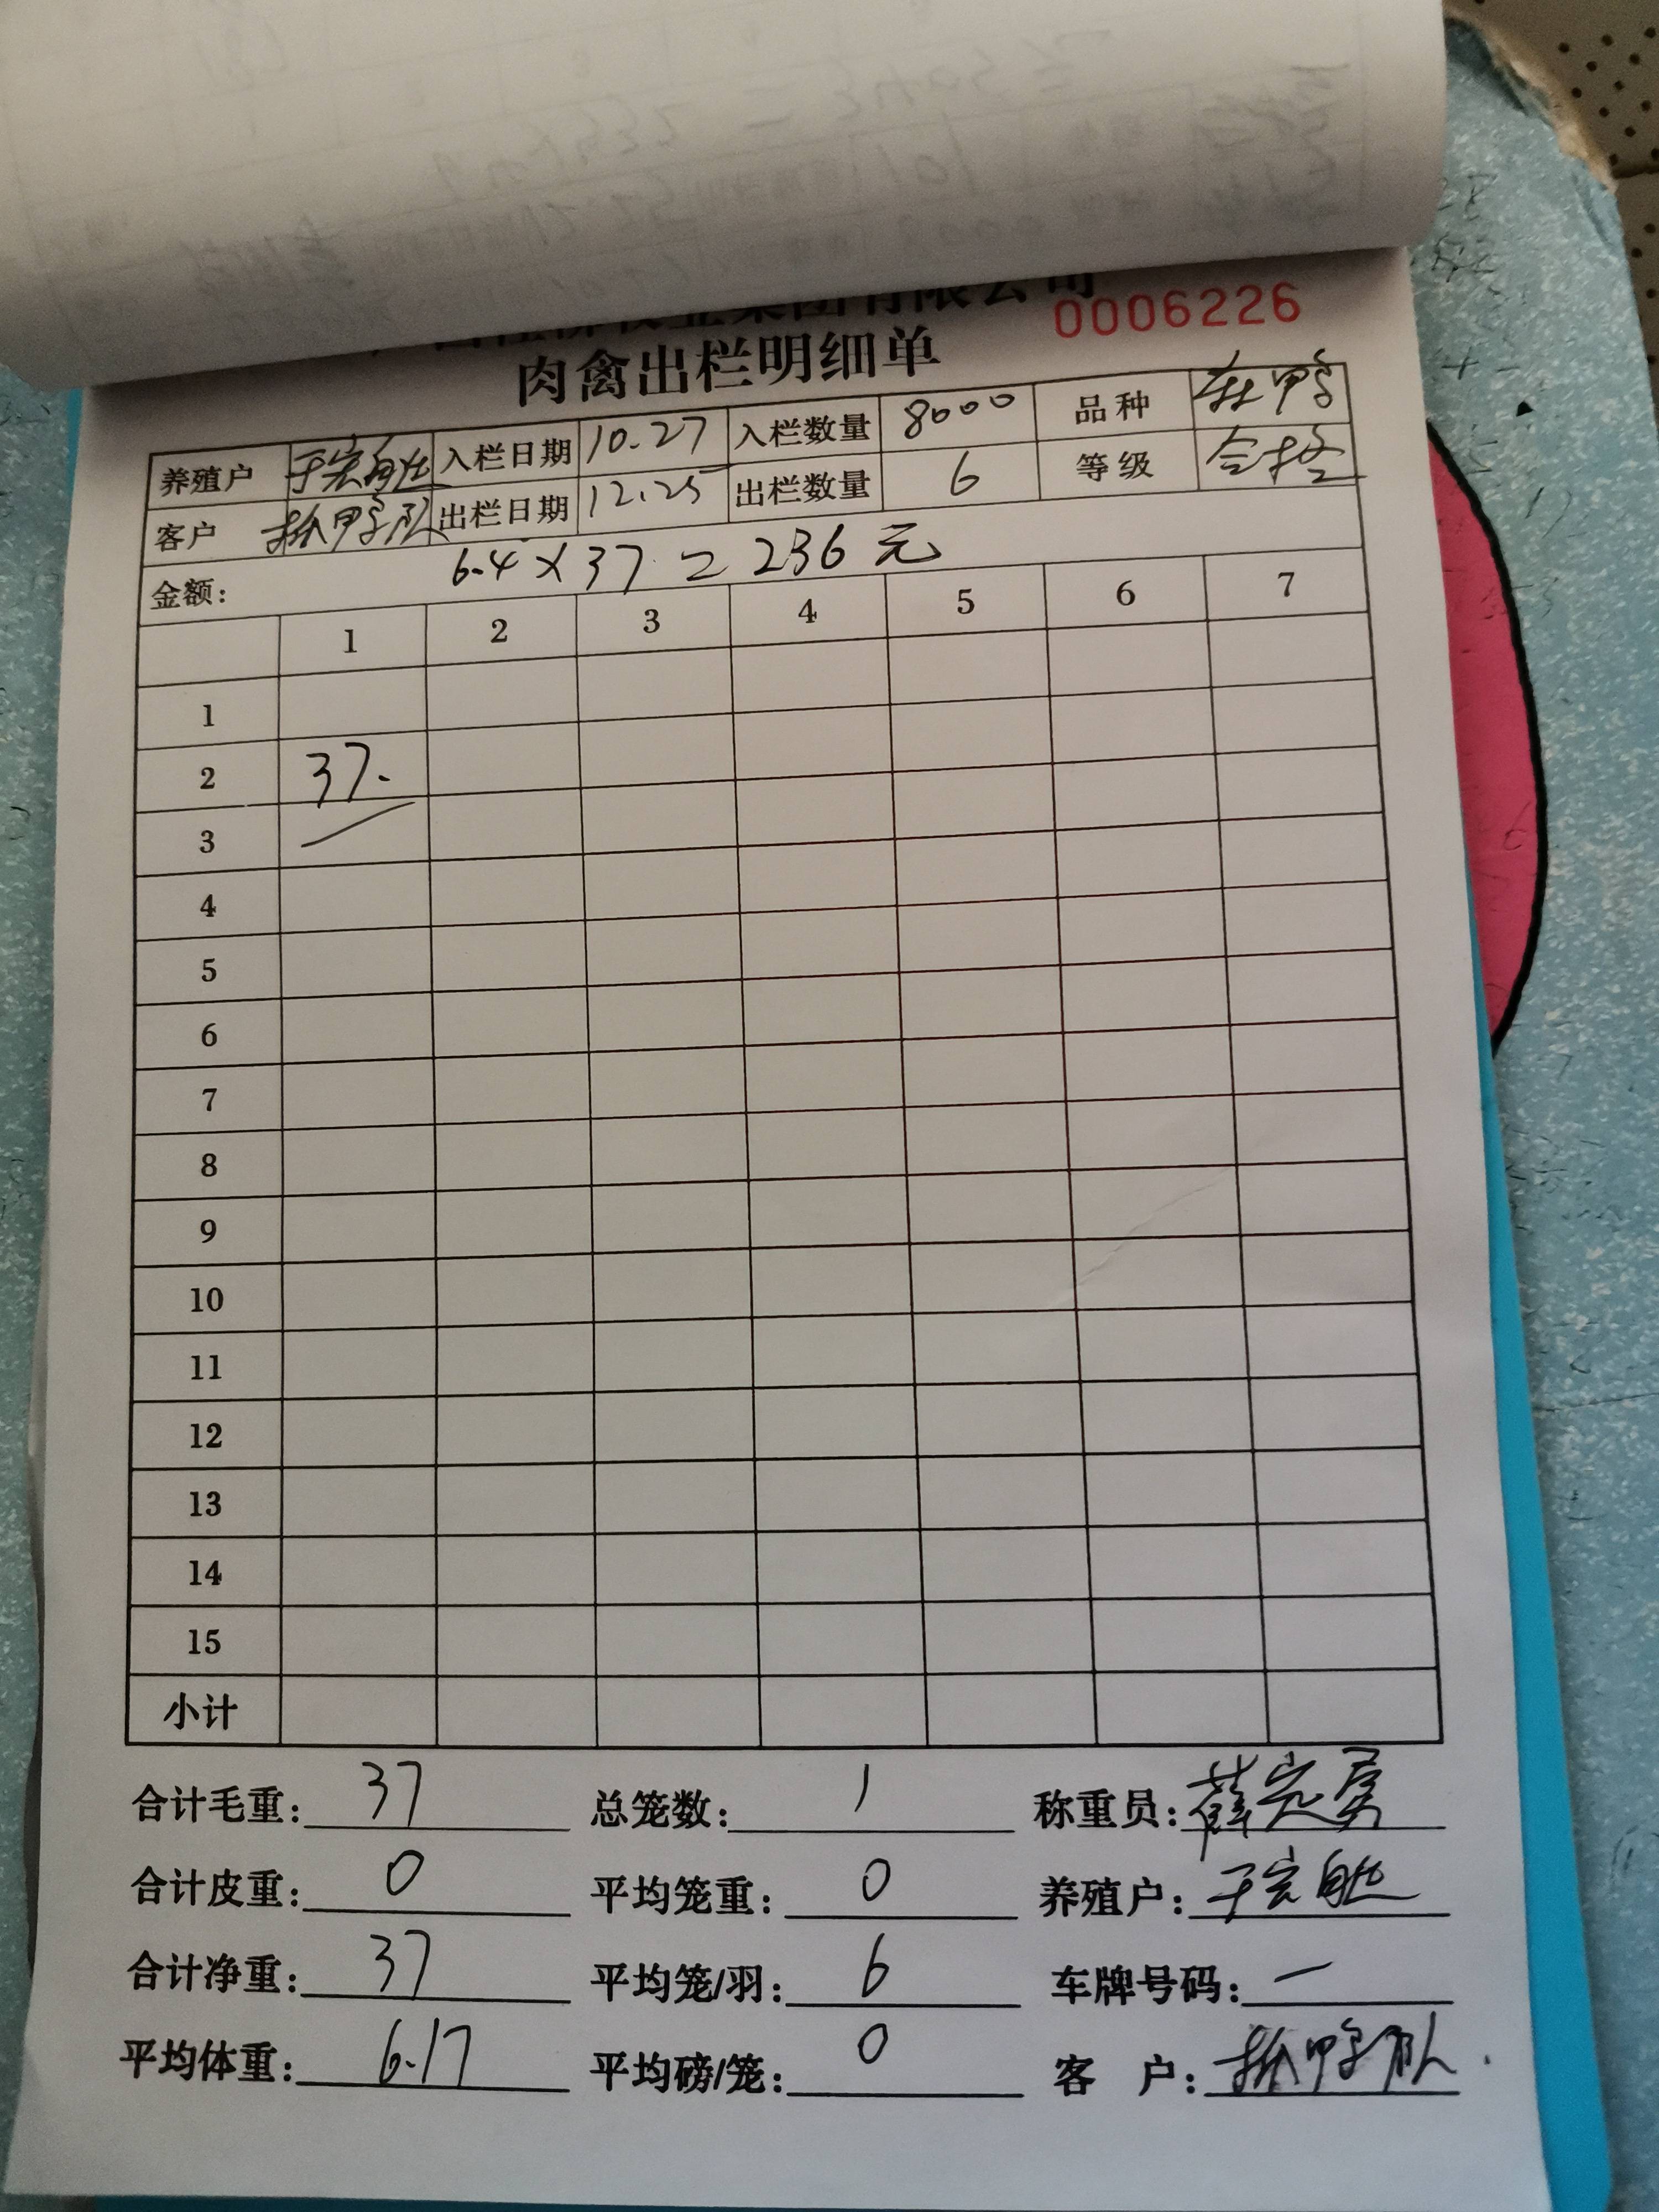 集团有限公司
0006226
肉禽出栏明细单
养殖户 入栏日期 10.27 入栏数量 8000 品种
客户 抓鸭队 出栏日期 12.25 出栏数量 6 等级 合格
金额: 6.4×37=236元
1 2 3 4 5 6 7
1
2 37.
3
4
5
6
7
8
9
10
11
12
13
14
15
小计
合计毛重: 37 总笼数: 1 称重员:
合计皮重: 0 平均笼重: 0 养殖户:
合计净重: 37 平均笼/羽: 6 车牌号码: 一
平均体重: 6.17 平均磅/笼: 0 客 户: 抓鸭队